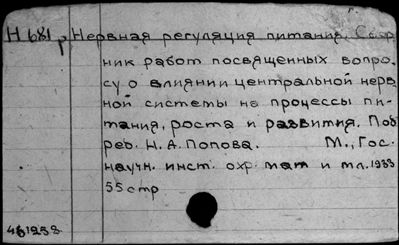 Н 681 р Нервная регуляция питания. Сбор
ник работ посвященных вопро
су о влиянии центральной нерв
ной системы на процессы пи-
тания, роста и развития. Под
ред. Н. А. Попова. М., Гос.
научн. инст. охр. мат и мл. 1933
55 стр